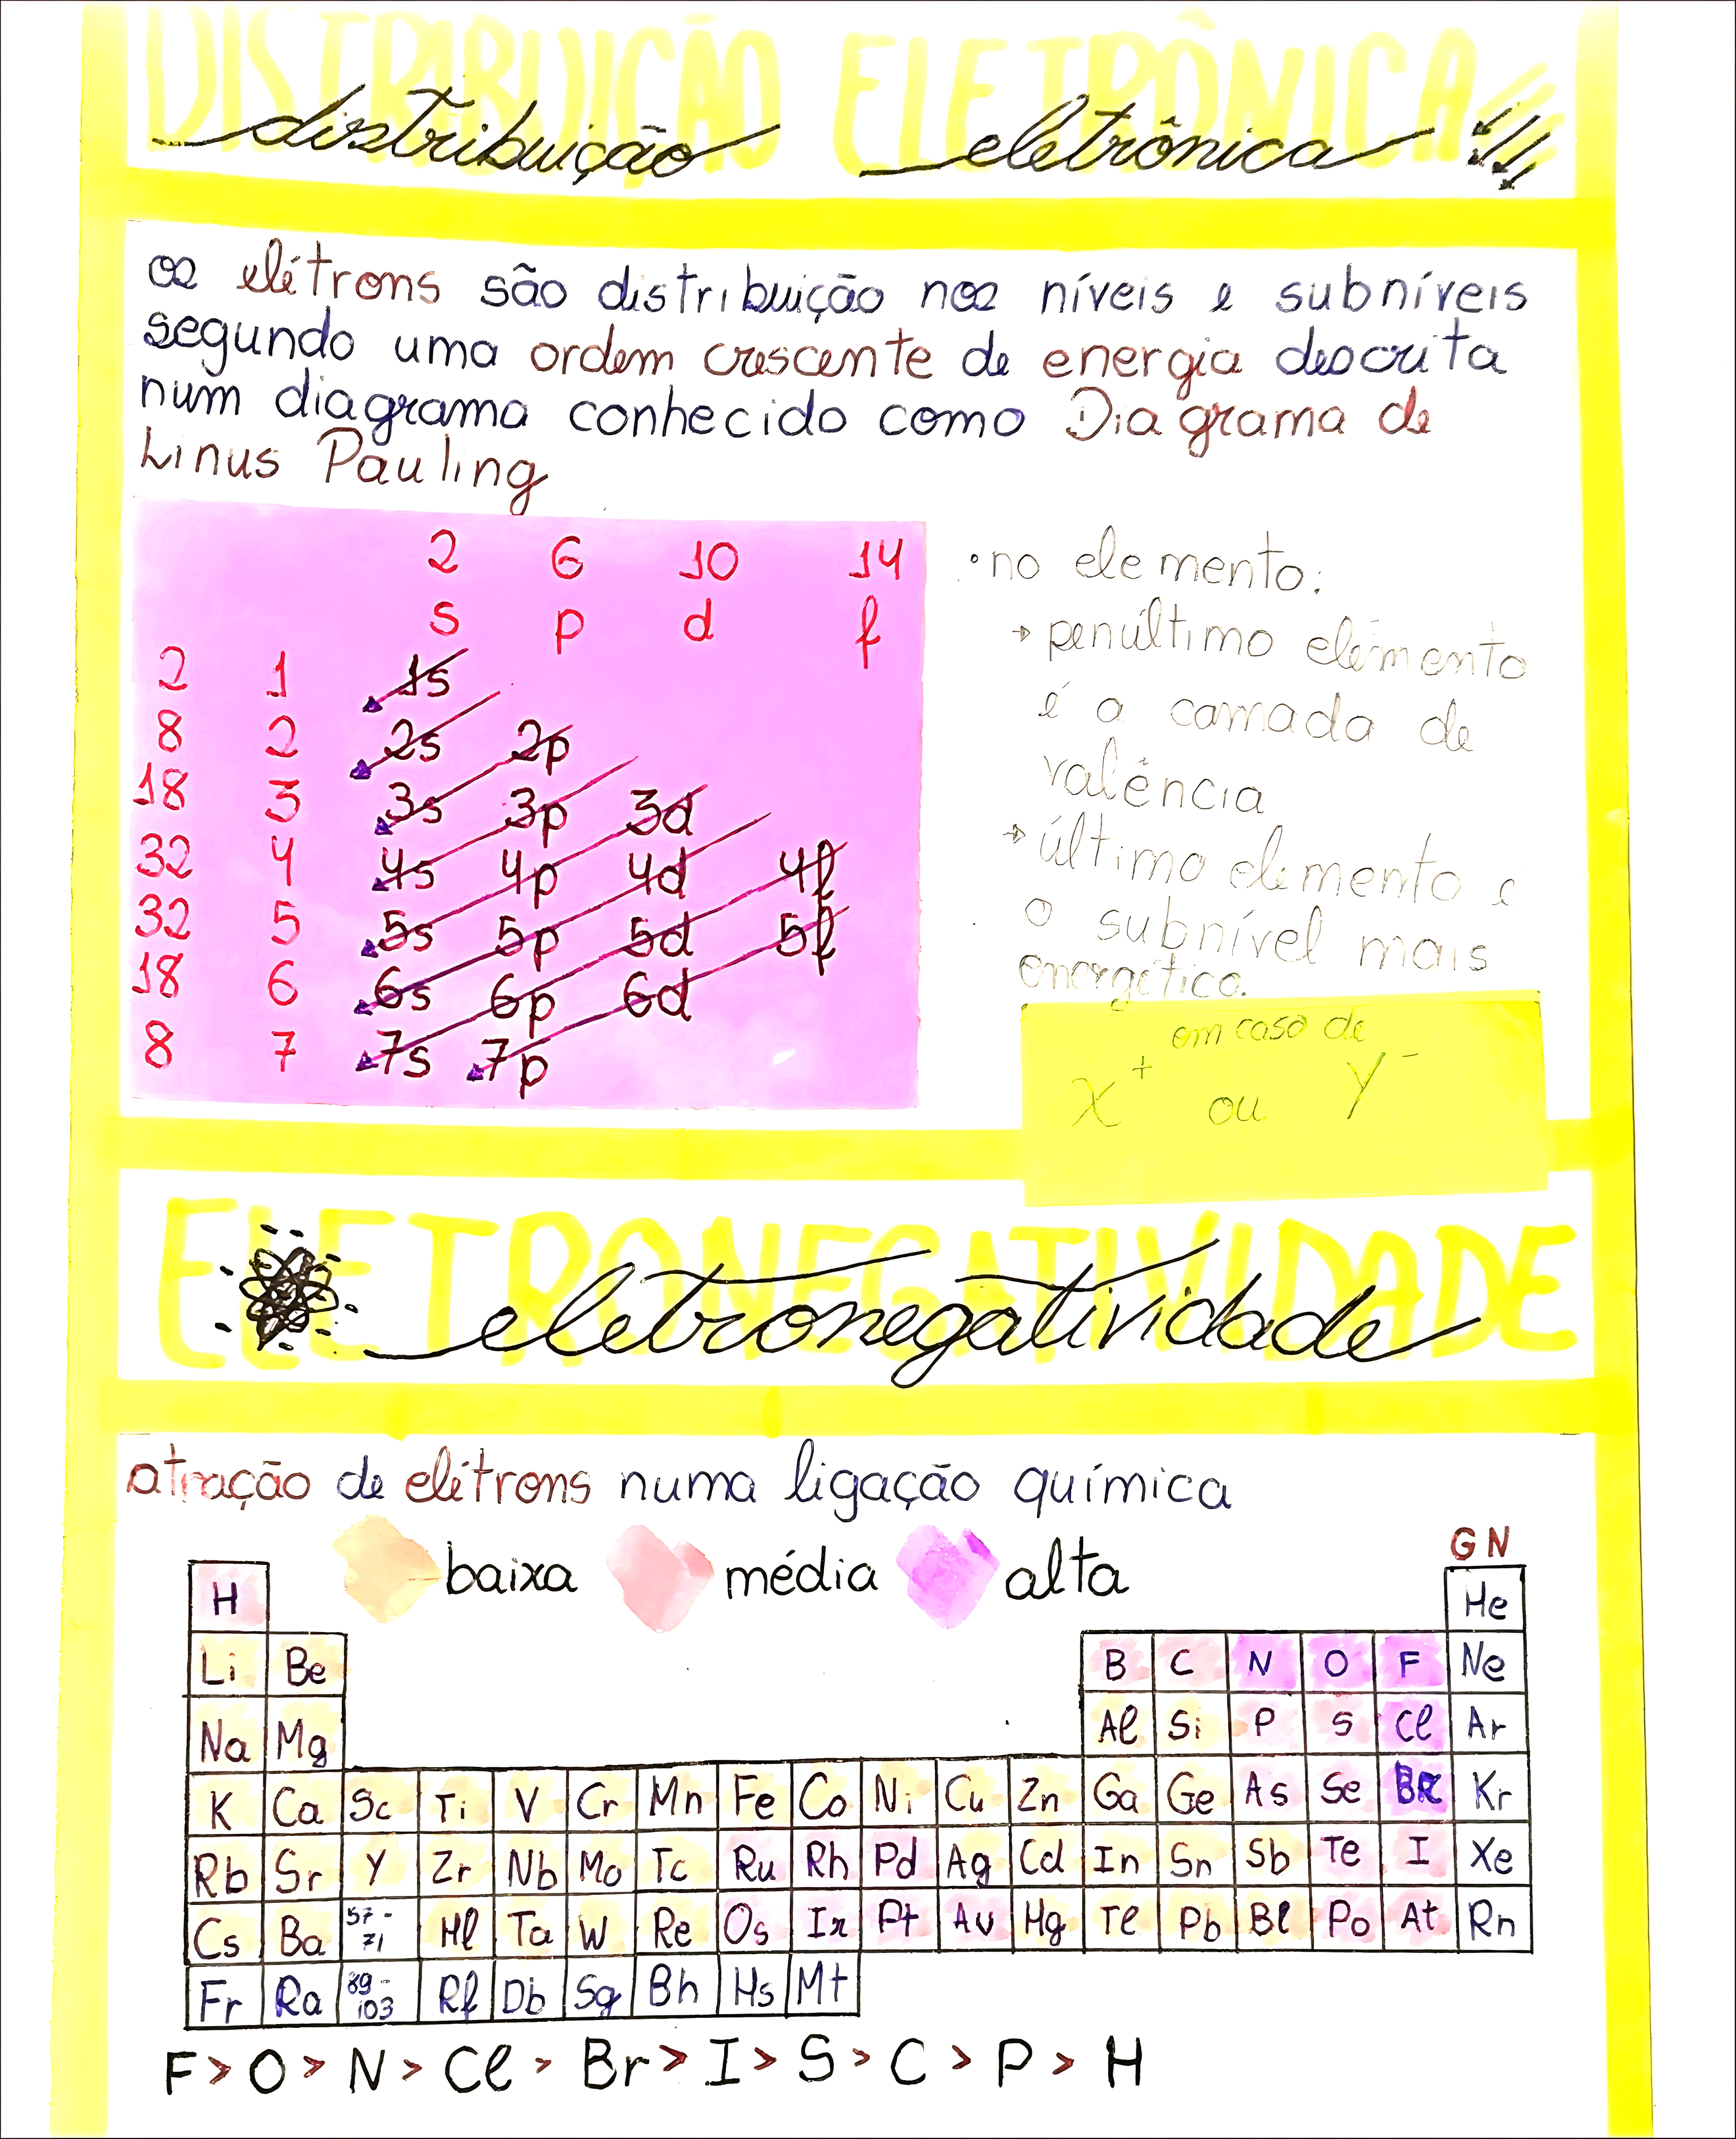 DISTRIBUIÇÃO ELETRÔNICA
distribuição eletrônica
os elétrons são distribuição nos níveis e subníveis
segundo uma ordem crescente de energia descrita
num diagrama conhecido como Diagrama de
Linus Pauling
2 6 10 14
s p d f
2 1 1s
8 2 2s 2p
18 3 3s 3p 3d
32 4 4s 4p 4d 4f
32 5 5s 5p 5d 5f
18 6 6s 6p 6d
8 7 7s 7p
• no elemento:
→ penúltimo elemento
é a camada de
valência
→ último elemento é
o subnível mais
energético.
em caso de
X+ ou Y-
ELETRONEGATIVIDADE
eletronegatividade
atração de elétrons numa ligação química
baixa média alta
GN
H He
Li Be B C N O F Ne
Na Mg Al Si P S Cl Ar
K Ca Sc Ti V Cr Mn Fe Co Ni Cu Zn Ga Ge As Se Br Kr
Rb Sr Y Zr Nb Mo Tc Ru Rh Pd Ag Cd In Sn Sb Te I Xe
Cs Ba 57-71 Hl Ta W Re Os Ir Pt Au Hg Tl Pb Bl Po At Rn
Fr Ra 89-103 Rf Db Sg Bh Hs Mt
F > O > N > Cl > Br > I > S > C > P > H